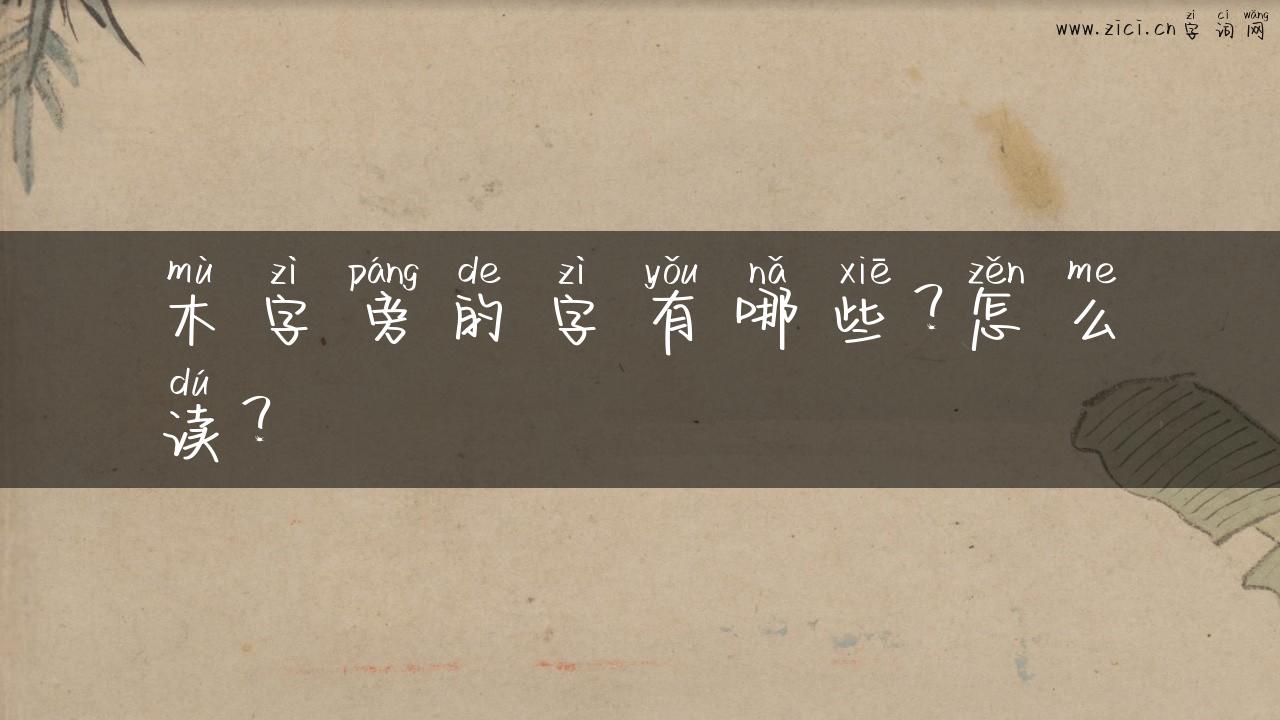 zì cí wǎng
www.zici.cn 字 词 网
mù zì páng de zì yǒu nǎ xiē zěn me
木 字 旁 的 字 有 哪 些 ? 怎 么
dú
读 ?